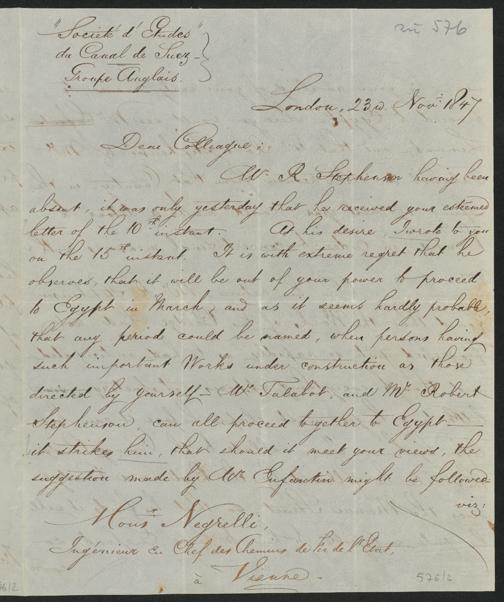 "Societé d'Etudes"
du Canal de Suez -
Troupe Anglais.
zu 576
London, 23d Novr. 1847
Dear Colleague:
Mr. R. Stephenson having been
absent, it was only yesterday that he received your esteemed
letter of the 10th instant. At his desire I wrote to you
on the 15th instant. It is with extreme regret that he
observes, that it will be out of your power to proceed
to Egypt in March, and as it seems hardly probable,
that any period could be named, when persons having
such important Works under construction as those
directed by yourself - Mr. Talabot, and Mr. Robert
Stephenson, can all proceed together to Egypt -
it strikes him, that should it meet your views, the
suggestion made by Mr. Enfantin might be followed
viz:
Monsr. Negrelli,
Ingénieur en Chef des Chemins de Fer de l'Etat,
à Vienne.
576/2